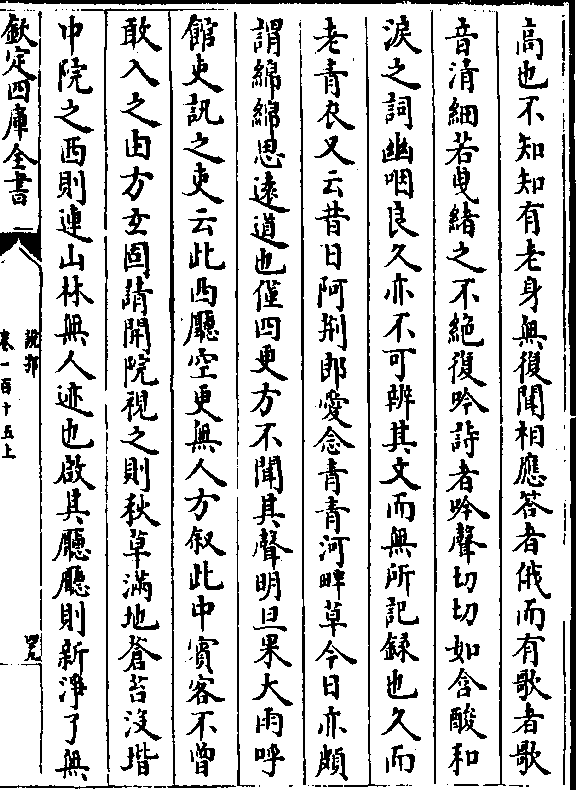 高也不知知有老身無復聞相應答者俄而有歌者歌
音清細若曳緒之不絶復吟詩者吟聲切切如含酸和
淚之詞幽咽良久亦不可辨其文而無所記録也久而
老青衣又云昔日阿荆郎愛念青青河畔草今日亦頗
謂綿綿思遠道也僅四更方不聞其聲明旦果大雨呼
館吏訊之吏云此西廳空更無人方叙此中賓客不曾
敢入之由方玄固請開院視之則秋草滿地蒼苔没堦
中院之西則連山林無人迹也啟其廳廳則新淨了無
欽定四庫全書
説郛
卷一百十五上
四九